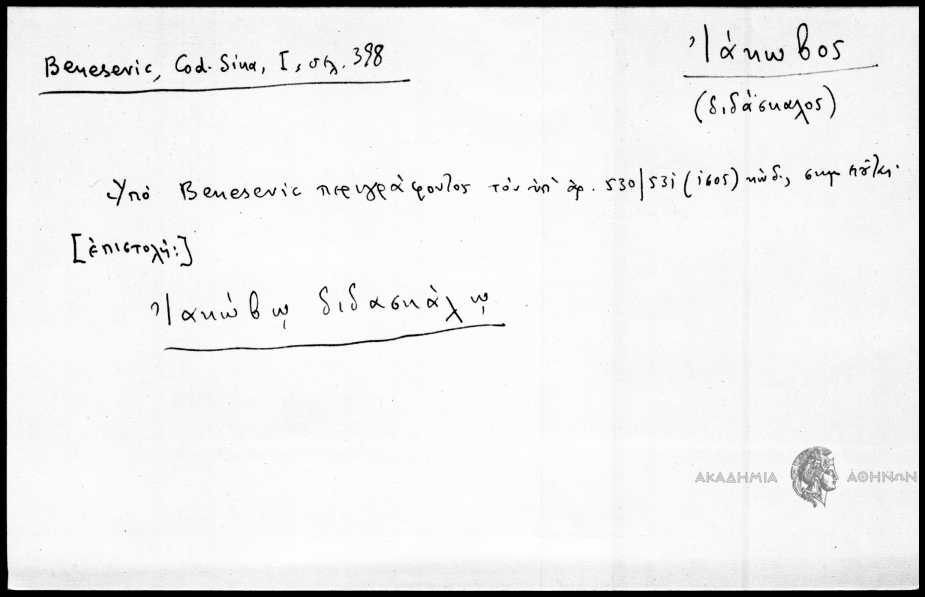 Benesevic, Cod. Sina, I, σελ. 398
Ἰάκωβος
(διδάσκαλος)
Ὑπό Benesevic περιγράφοντος τόν ὑπ' ἀρ. 530/531 (1605) κώδ.,
[ἐπιστολή:]
Ἰακώβῳ διδασκάλῳ
ΑΚΑΔΗΜΙΑ ΑΘΗΝΩΝ